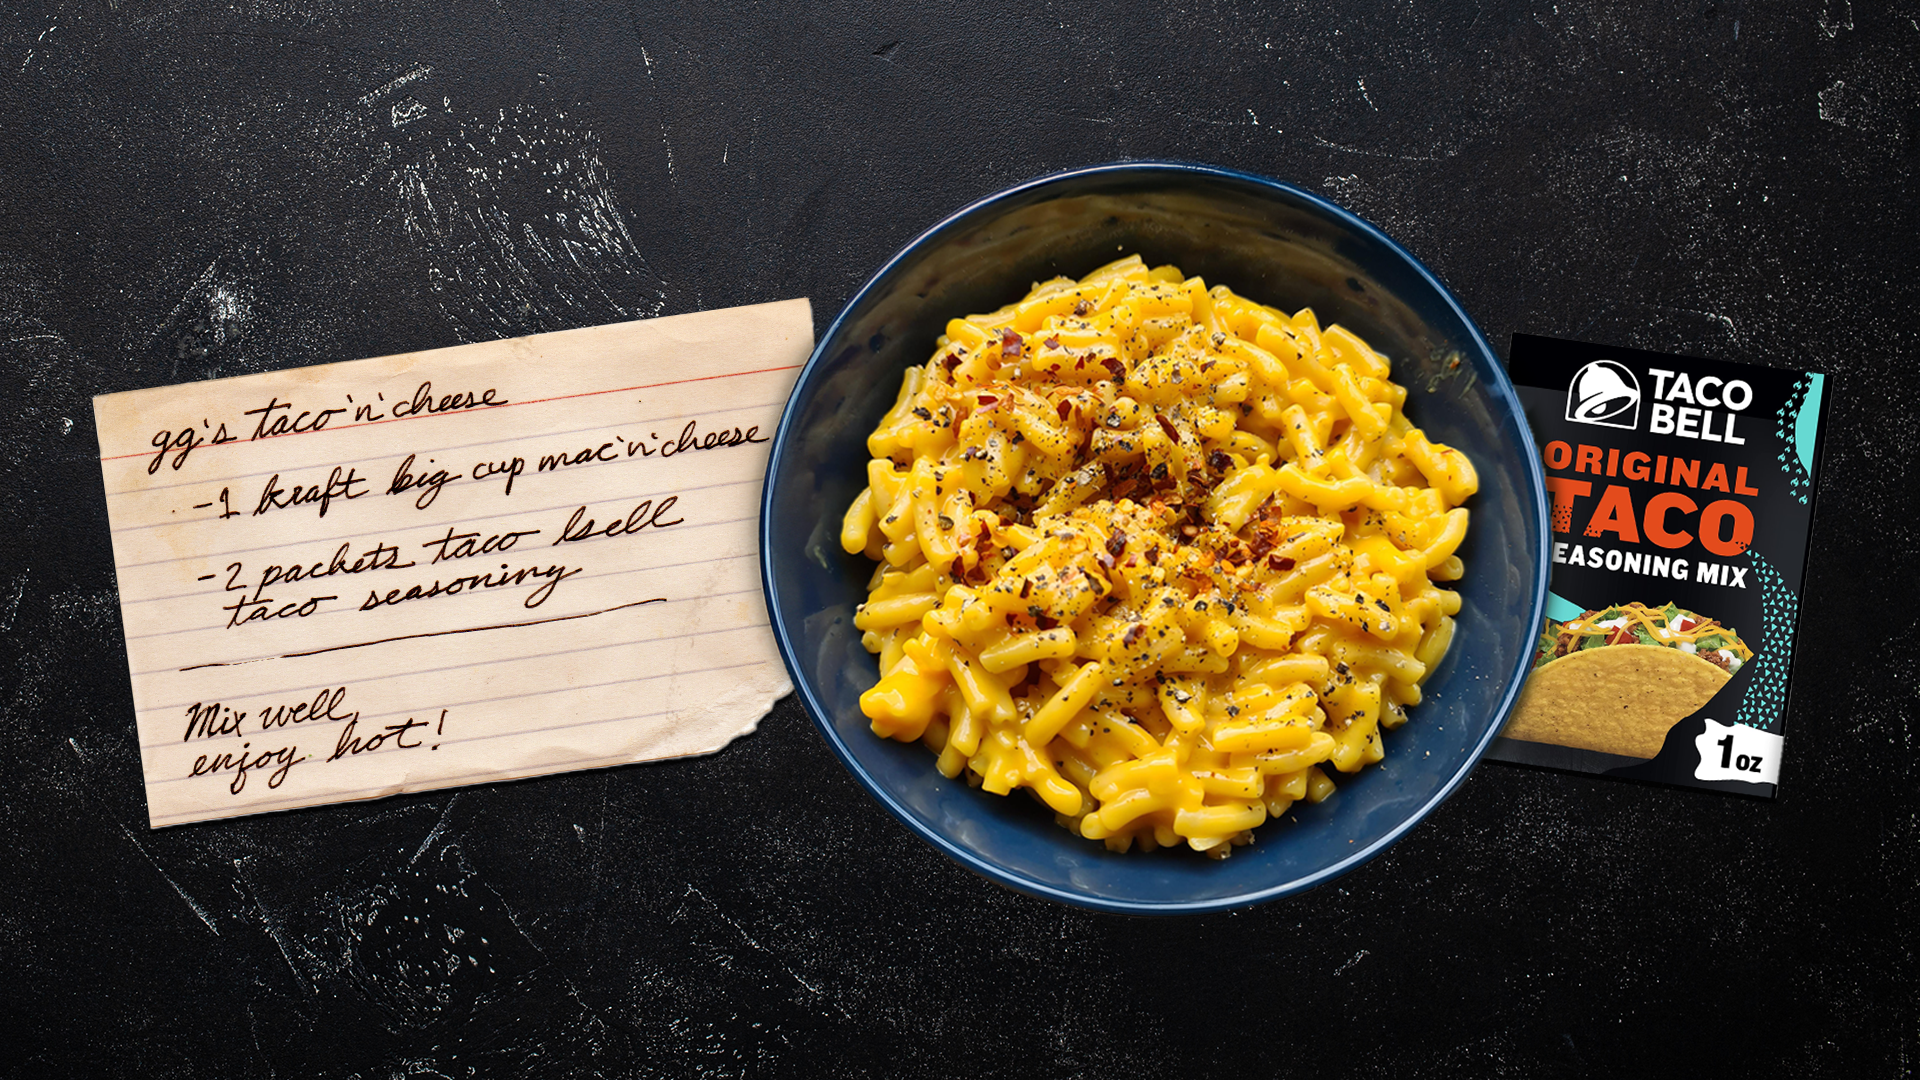 gg's taco 'n' cheese
-1 kraft big cup mac 'n' cheese
-2 packets taco bell
taco seasoning
Mix well,
enjoy hot!
TACO
BELL
ORIGINAL
TACO
EASONING MIX
1 oz